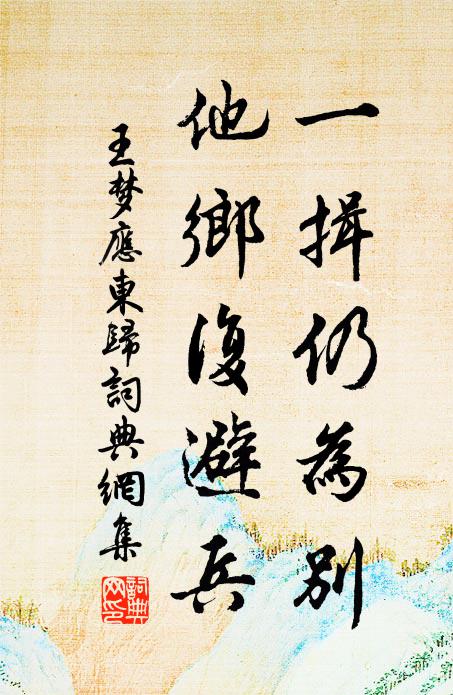 一揖仍為別
他鄉復避兵
王梦應東歸詞典網集
詞典網印